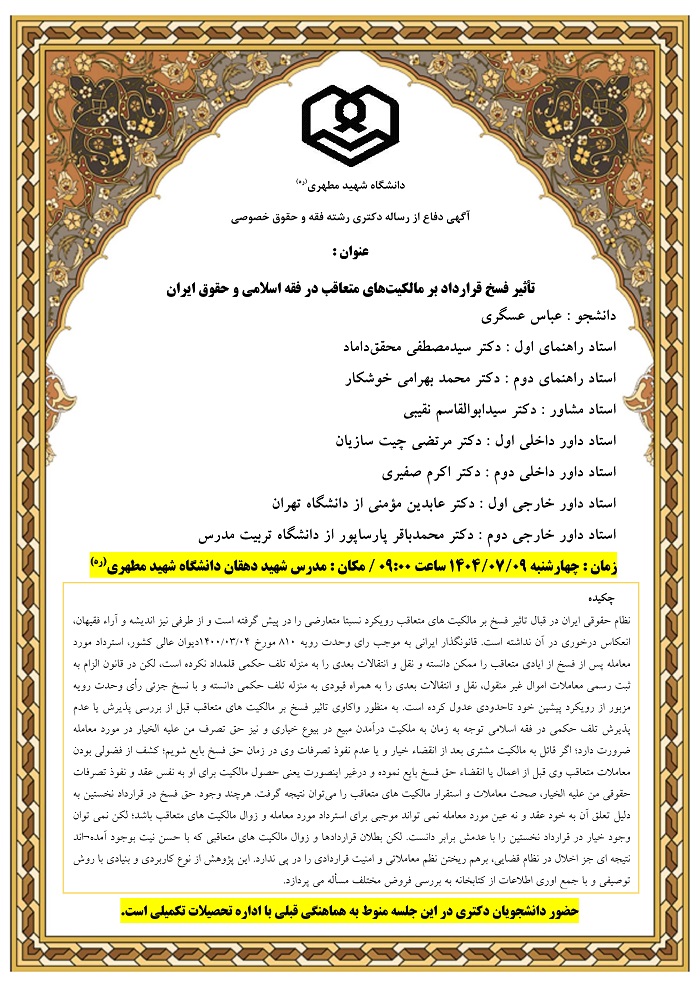 دانشگاه شهید مطهری(ره)
آگهی دفاع از رساله دکتری رشته فقه و حقوق خصوصی
عنوان :
تأثیر فسخ قرارداد بر مالکیت‌های متعاقب در فقه اسلامی و حقوق ایران
دانشجو : عباس عسگری
استاد راهنمای اول : دکتر سیدمصطفی محقق‌داماد
استاد راهنمای دوم : دکتر محمد بهرامی خوشکار
استاد مشاور : دکتر سیدابوالقاسم نقیبی
استاد داور داخلی اول : دکتر مرتضی چیت سازیان
استاد داور داخلی دوم : دکتر اکرم صفیری
استاد داور خارجی اول : دکتر عابدین مؤمنی از دانشگاه تهران
استاد داور خارجی دوم : دکتر محمدباقر پارساپور از دانشگاه تربیت مدرس
زمان : چهارشنبه ۱۴۰۴/۰۷/۰۹ ساعت ۰۹:۰۰ / مکان : مدرس شهید دهقان دانشگاه شهید مطهری(ره)
چکیده
نظام حقوقی ایران در قبال تاثیر فسخ بر مالکیت های متعاقب رویکرد نسبتا متعارضی را در پیش گرفته است و از طرفی نیز اندیشه و آراء فقیهان،
انعکاس درخوری در آن نداشته است. قانونگذار ایرانی به موجب رای وحدت رویه ۸۱۰ مورخ ۱۴۰۰/۰۳/۰۴دیوان عالی کشور، استرداد مورد
معامله پس از فسخ از ایادی متعاقب را ممکن دانسته و نقل و انتقالات بعدی را به منزله تلف حکمی قلمداد نکرده است، لکن در قانون الزام به
ثبت رسمی معاملات اموال غیر منقول، نقل و انتقالات بعدی را به همراه قیودی به منزله تلف حکمی دانسته و با نسخ جزئی رأی وحدت رویه
مزبور از رویکرد پیشین خود تاحدودی عدول کرده است. به منظور واکاوی تاثیر فسخ بر مالکیت های متعاقب قبل از بررسی پذیرش یا عدم
پذیرش تلف حکمی در فقه اسلامی توجه به زمان به ملکیت درآمدن مبیع در بیوع خیاری و نیز حق تصرف من علیه الخیار در مورد معامله
ضرورت دارد؛ اگر قائل به مالکیت مشتری بعد از انقضاء خیار و یا عدم نفوذ تصرفات وی در زمان حق فسخ بایع شویم؛ کشف از فضولی بودن
معاملات متعاقب وی قبل از اعمال یا انقضاء حق فسخ بایع نموده و درغیر اینصورت یعنی حصول مالکیت برای او به نفس عقد و نفوذ تصرفات
حقوقی من علیه الخیار، صحت معاملات و استقرار مالکیت های متعاقب را می‌توان نتیجه گرفت. هرچند وجود حق فسخ در قرارداد نخستین به
دلیل تعلق آن به خود عقد و نه عین مورد معامله نمی تواند موجبی برای استرداد مورد معامله و زوال مالکیت های متعاقب باشد؛ لکن نمی توان
وجود خیار در قرارداد نخستین را با عدمش برابر دانست. لکن بطلان قراردادها و زوال مالکیت های متعاقبی که با حسن نیت بوجود آمده¬اند
نتیجه ای جز اخلال در نظام قضایی، برهم ریختن نظم معاملاتی و امنیت قراردادی را در پی ندارد. این پژوهش از نوع کاربردی و بنیادی با روش
توصیفی و با جمع اوری اطلاعات از کتابخانه به بررسی فروض مختلف مسأله می پردازد.
حضور دانشجویان دکتری در این جلسه منوط به هماهنگی قبلی با اداره تحصیلات تکمیلی است.